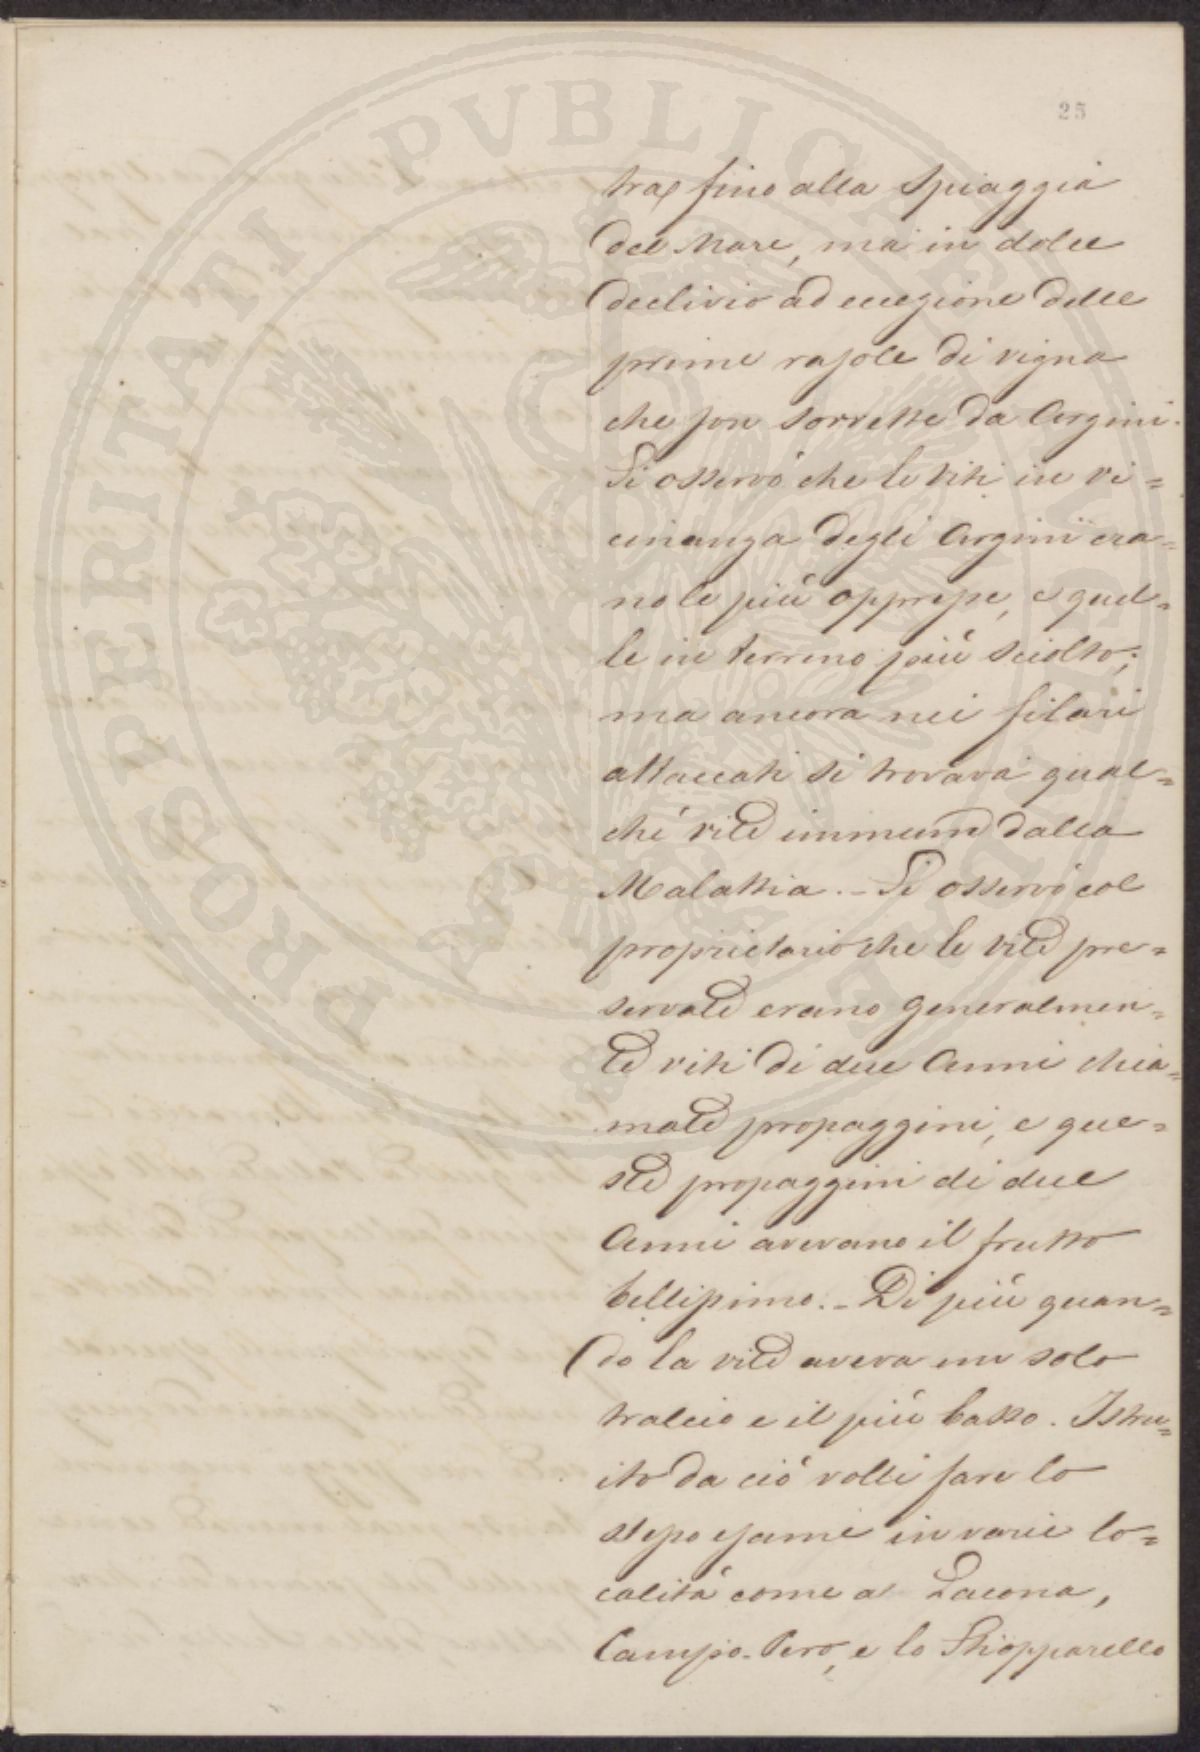 25
trae fino alla Spiaggia
del Mare, ma in dolce
declivio ad eccezione delle
prime rasole di vigna
che son sorrette da Argini.
Si osservò che le viti in vi=
cinanza degli Argini era=
no le più oppresse, e quel=
le in terreno più sciolto;
ma ancora nei filari
attaccati si trovava qual=
che vite immune dalla
Malattia. - Si osservò col
proprietario che le vite pre=
servate erano generalmen=
te viti di due Anni chia=
mate propaggini, e que=
ste propaggini di due
Anni avevano il frutto
bellissimo. - Di più quan=
do la vite aveva un solo
tralcio e il più basso. Istru=
ito da ciò volli fare lo
stesso esame in varie lo=
calità come a Lacona,
Campo-Pero, e lo Schiopparello
PROSPERITATI PVBLICAE AVGENDAE